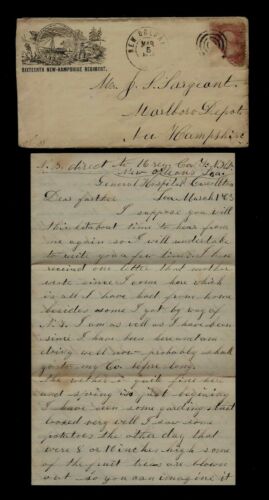 SIXTEENTH NEW-HAMPSHIRE REGIMENT.
NEW ORLEANS
MAR
5
Mr. J. S. Sargeant
Marlboro Depot
New Hampshire
N.B. direct to 16 regt Co. N.H.V.
New Orleans Lou.
General Hospital Carrollton
Dear farther Lou March 1st 63
I suppose you will
think about time to hear from
me again so I will undertake
to write you a few lines. I have
received one letter that mother
wrote since I come here which
is all I have had from home
besides some I got by way of
N.B. I am as well as I have been
since I have been here am
doing well now probably shall
go to my Co. before long.
the wether is quite fine here
and spring is just begining
I have seen some gardens that
looked very well I saw some
potatoes the other day that
were 8 or 10 inches high some
of the fruit trees are blown
out so you can imagine it